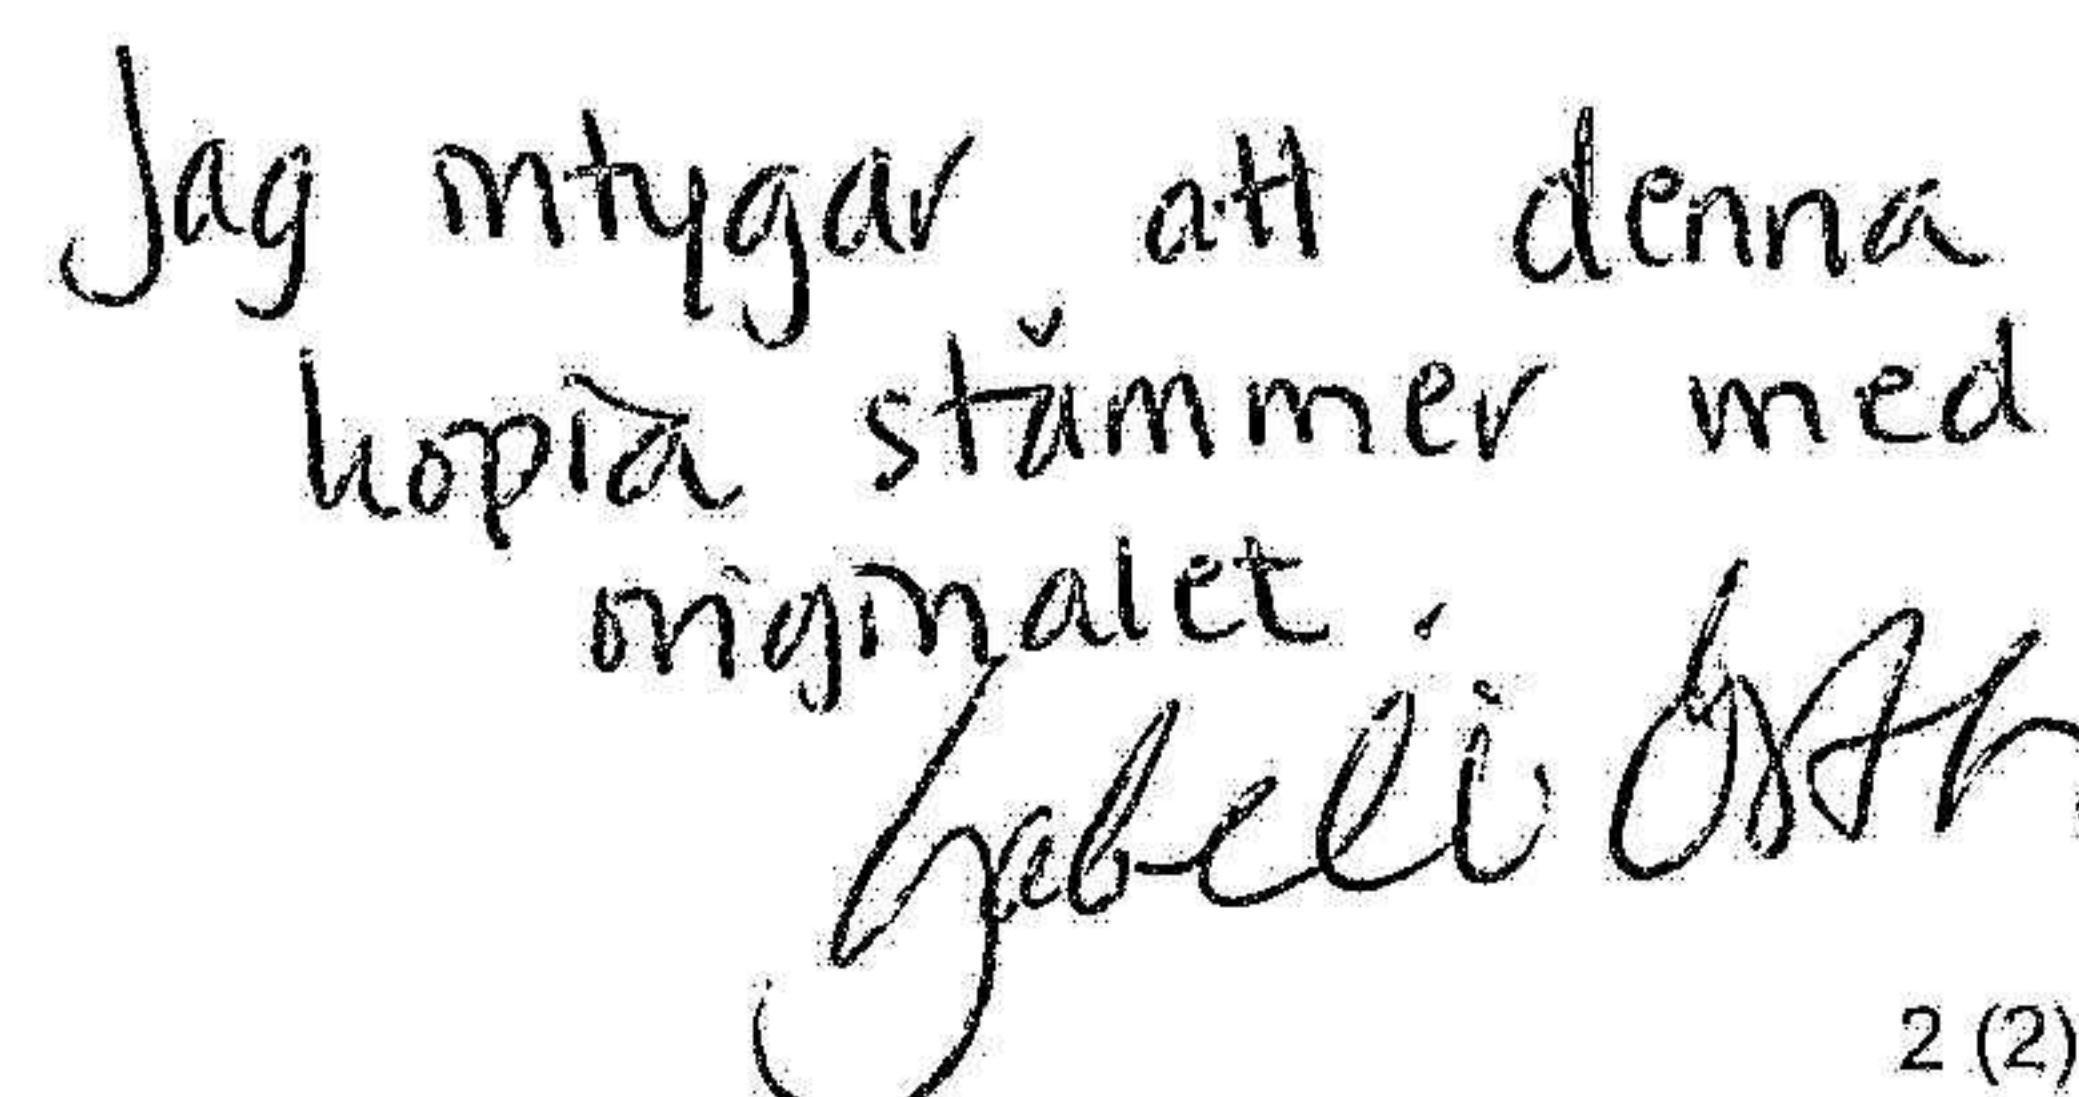 Jag intygar att denna
kopia stämmer med
originalet.
2 (2)